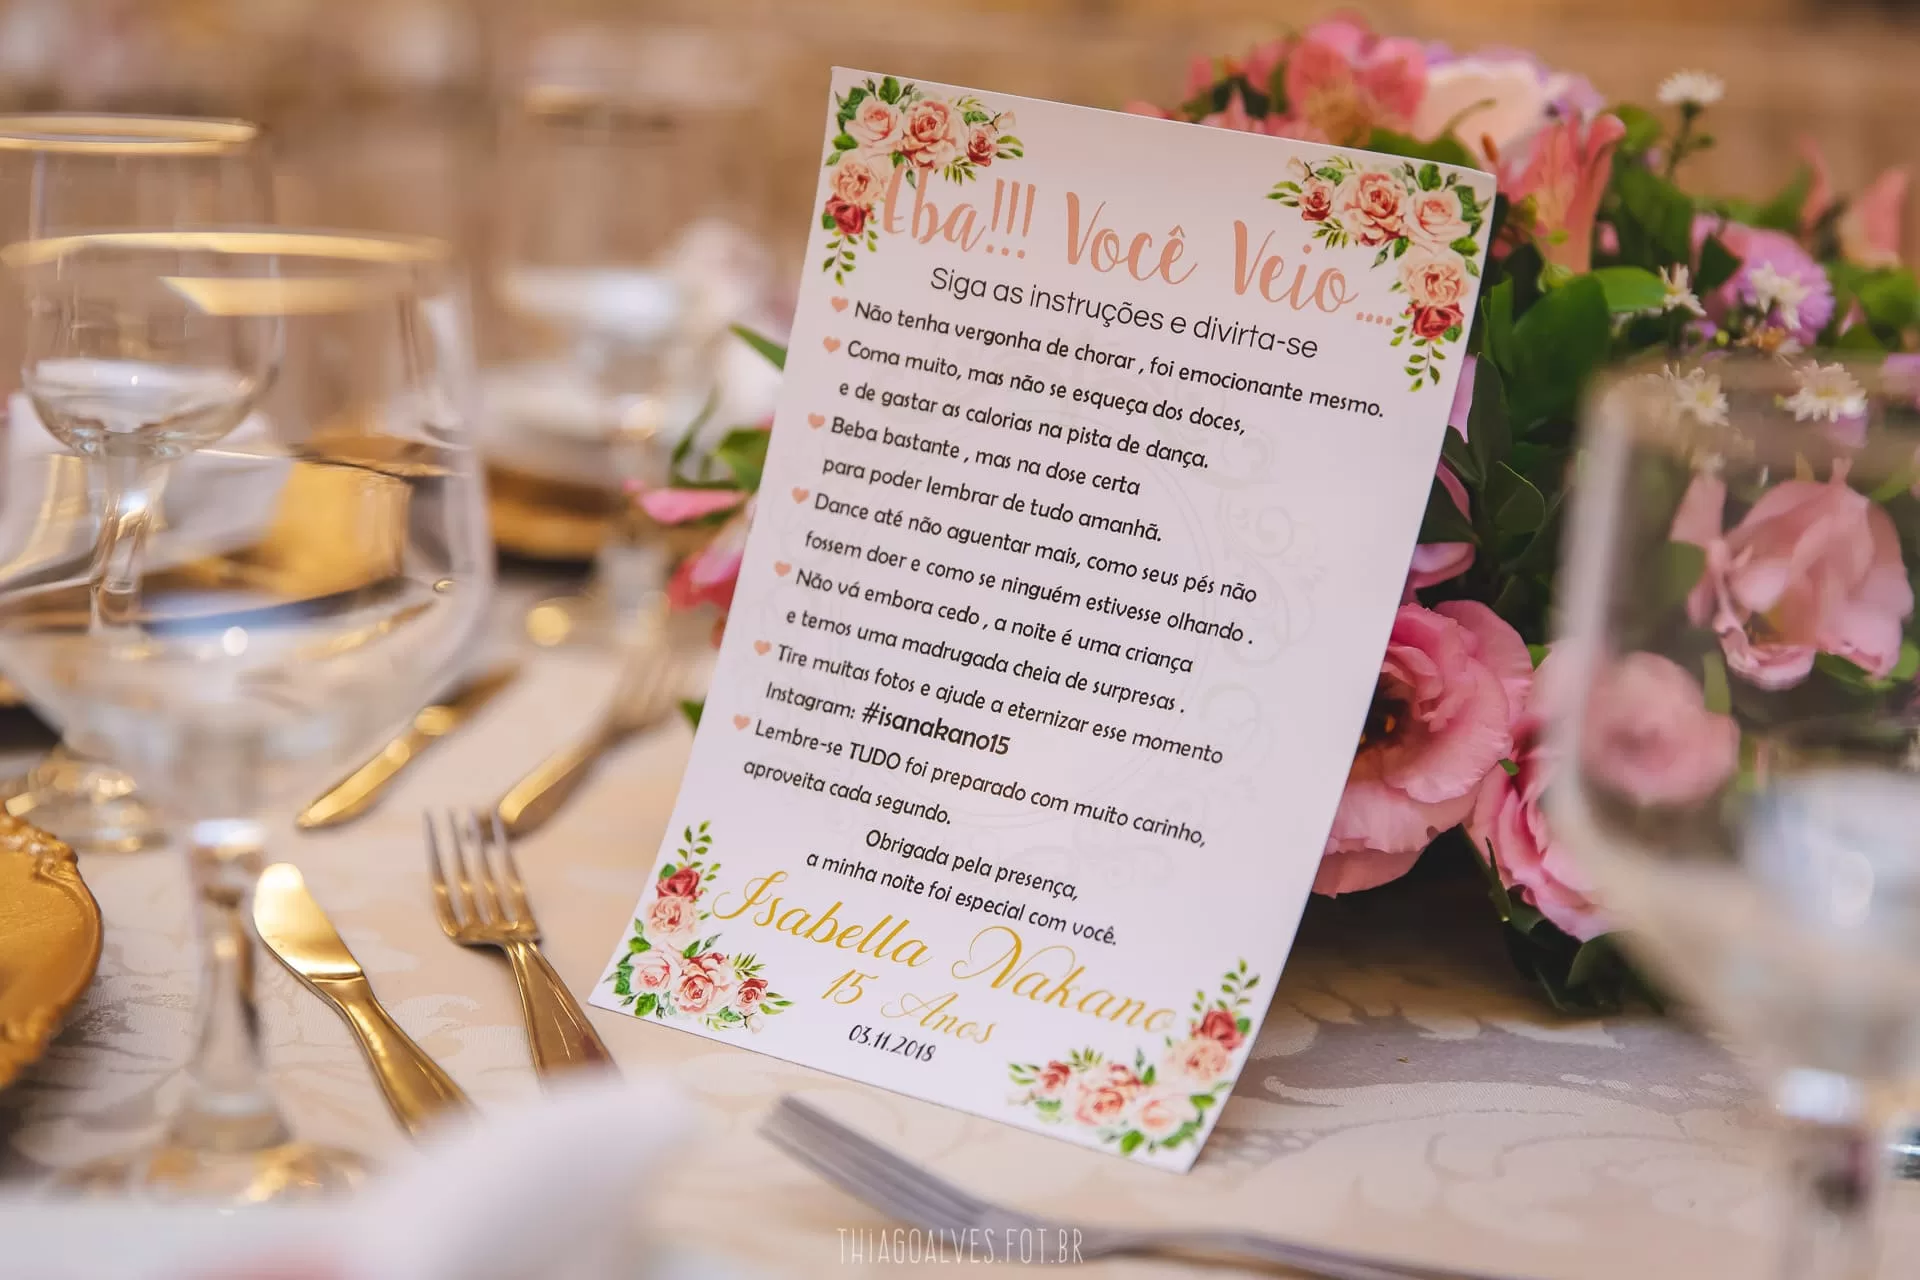 Eba!!! Você Veio....
Siga as instruções e divirta-se
Não tenha vergonha de chorar , foi emocionante mesmo.
Coma muito, mas não se esqueça dos doces,
e de gastar as calorias na pista de dança.
Beba bastante , mas na dose certa
para poder lembrar de tudo amanhã.
Dance até não aguentar mais, como seus pés não
fossem doer e como se ninguém estivesse olhando .
Não vá embora cedo , a noite é uma criança
e temos uma madrugada cheia de surpresas .
Tire muitas fotos e ajude a eternizar esse momento
Instagram: #isanakano15
Lembre-se TUDO foi preparado com muito carinho,
aproveita cada segundo.
Obrigada pela presença,
a minha noite foi especial com você.
Isabella Nakano
15 Anos
03.11.2018
THIAGOALVES.FOT.BR